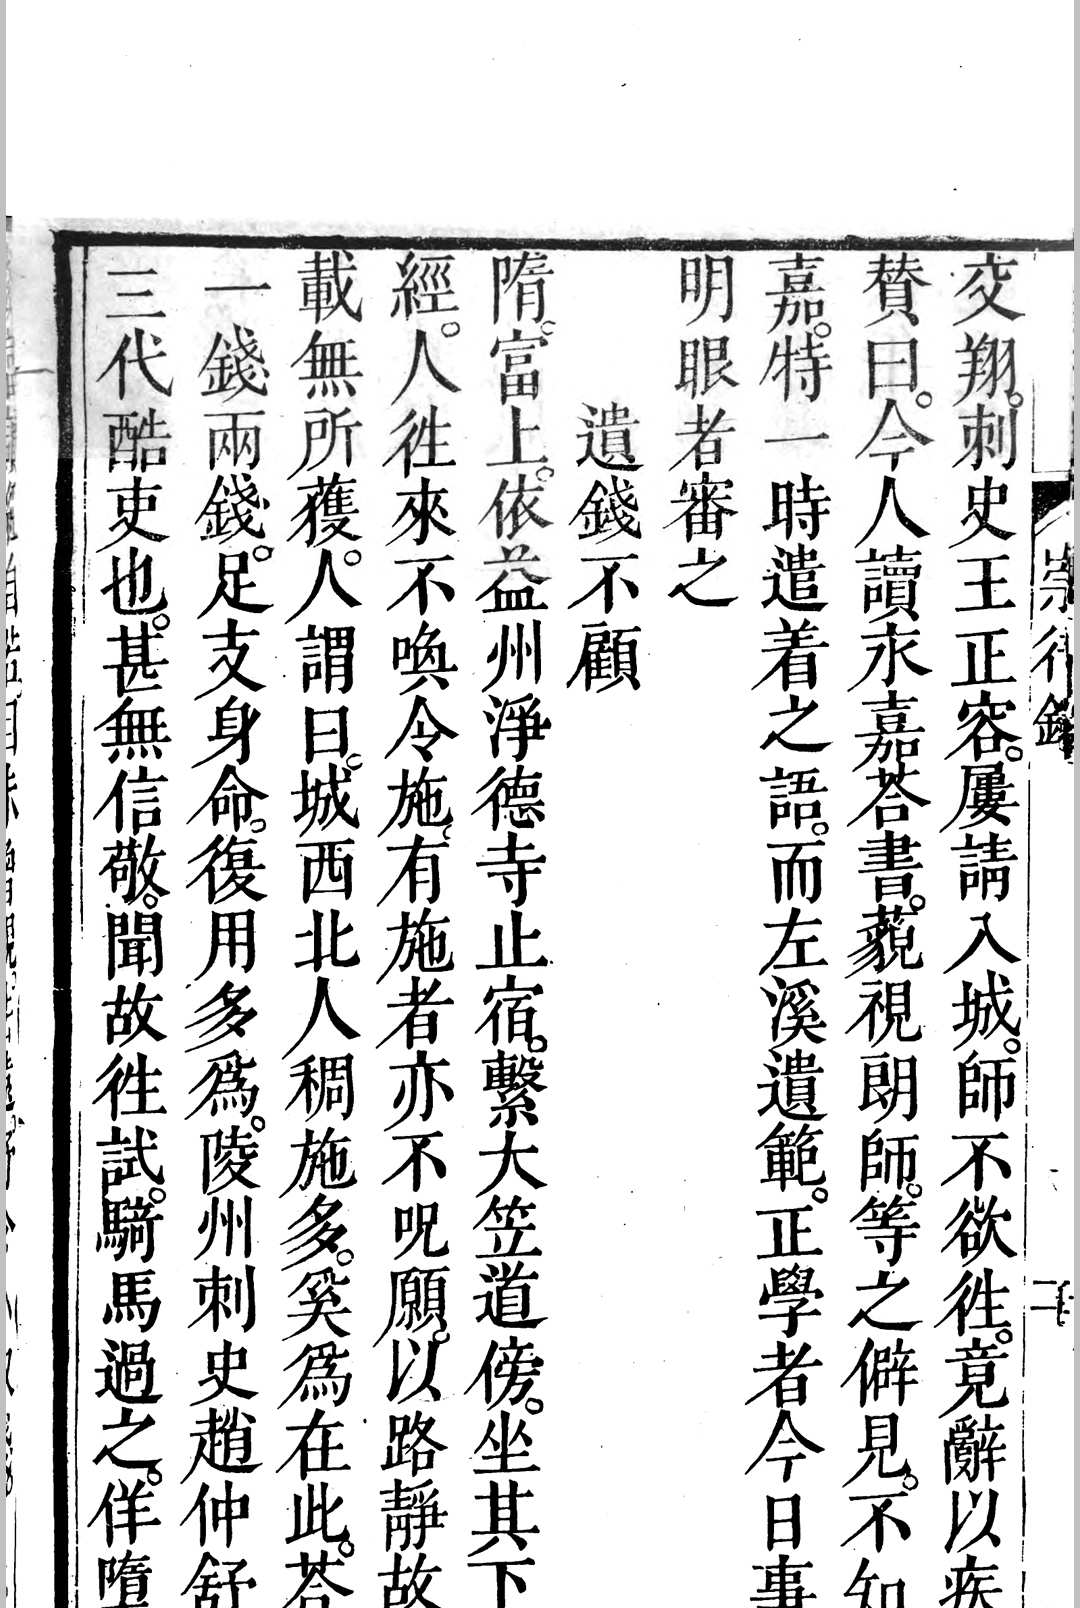 交翔。刺史王正容。屢請入城。師不欲徃。竟辭以疾
賛曰。今人讀永嘉荅書。藐視朗師。等之僻見。不知
嘉。特一時遣着之語。而左溪遺範。正學者今日事
明眼者審之
遺錢不顧
隋。富上。依益州淨德寺止宿。繫大笠道傍。坐其下
經。人徃來不喚令施。有施者亦不呪願。以路靜故
載無所獲。人謂曰。城西北人稠施多。奚爲在此。荅
一錢兩錢。足支身命。復用多爲。陵州刺史趙仲舒
三代酷吏也。甚無信敬。聞故徃試。騎馬過之。佯墮